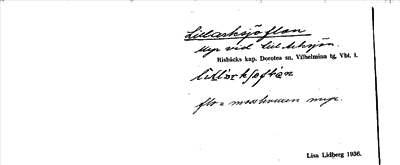 Lillarksjöflon
myr vid Lill Arksjön.
Risbäcks kap. Dorotea sn. Vilhelmina tg. Vbt. l.
flo = mosstuven myr.
Lisa Lidberg 1936.